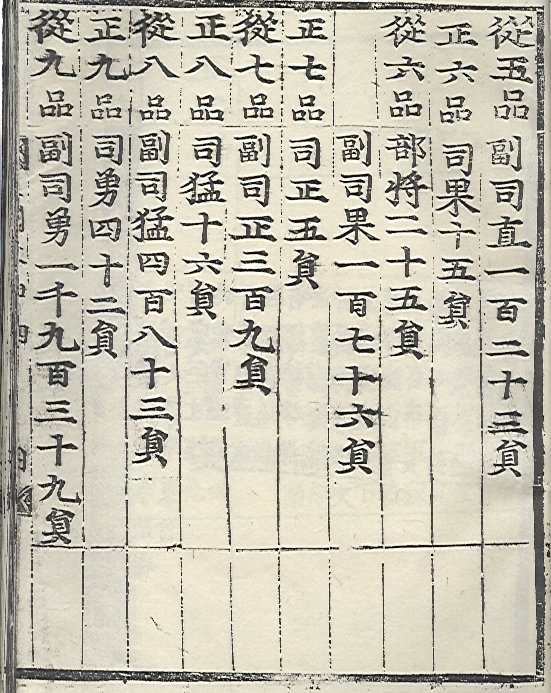 從五品 副司直一百二十三貟
正六品 司果十五貟
從六品 部將二十五貟
副司果一百七十六貟
正七品 司正五貟
從七品 副司正三百九貟
正八品 司猛十六貟
從八品 副司猛四百八十三貟
正九品 司勇四十二貟
從九品 副司勇一千九百三十九貟